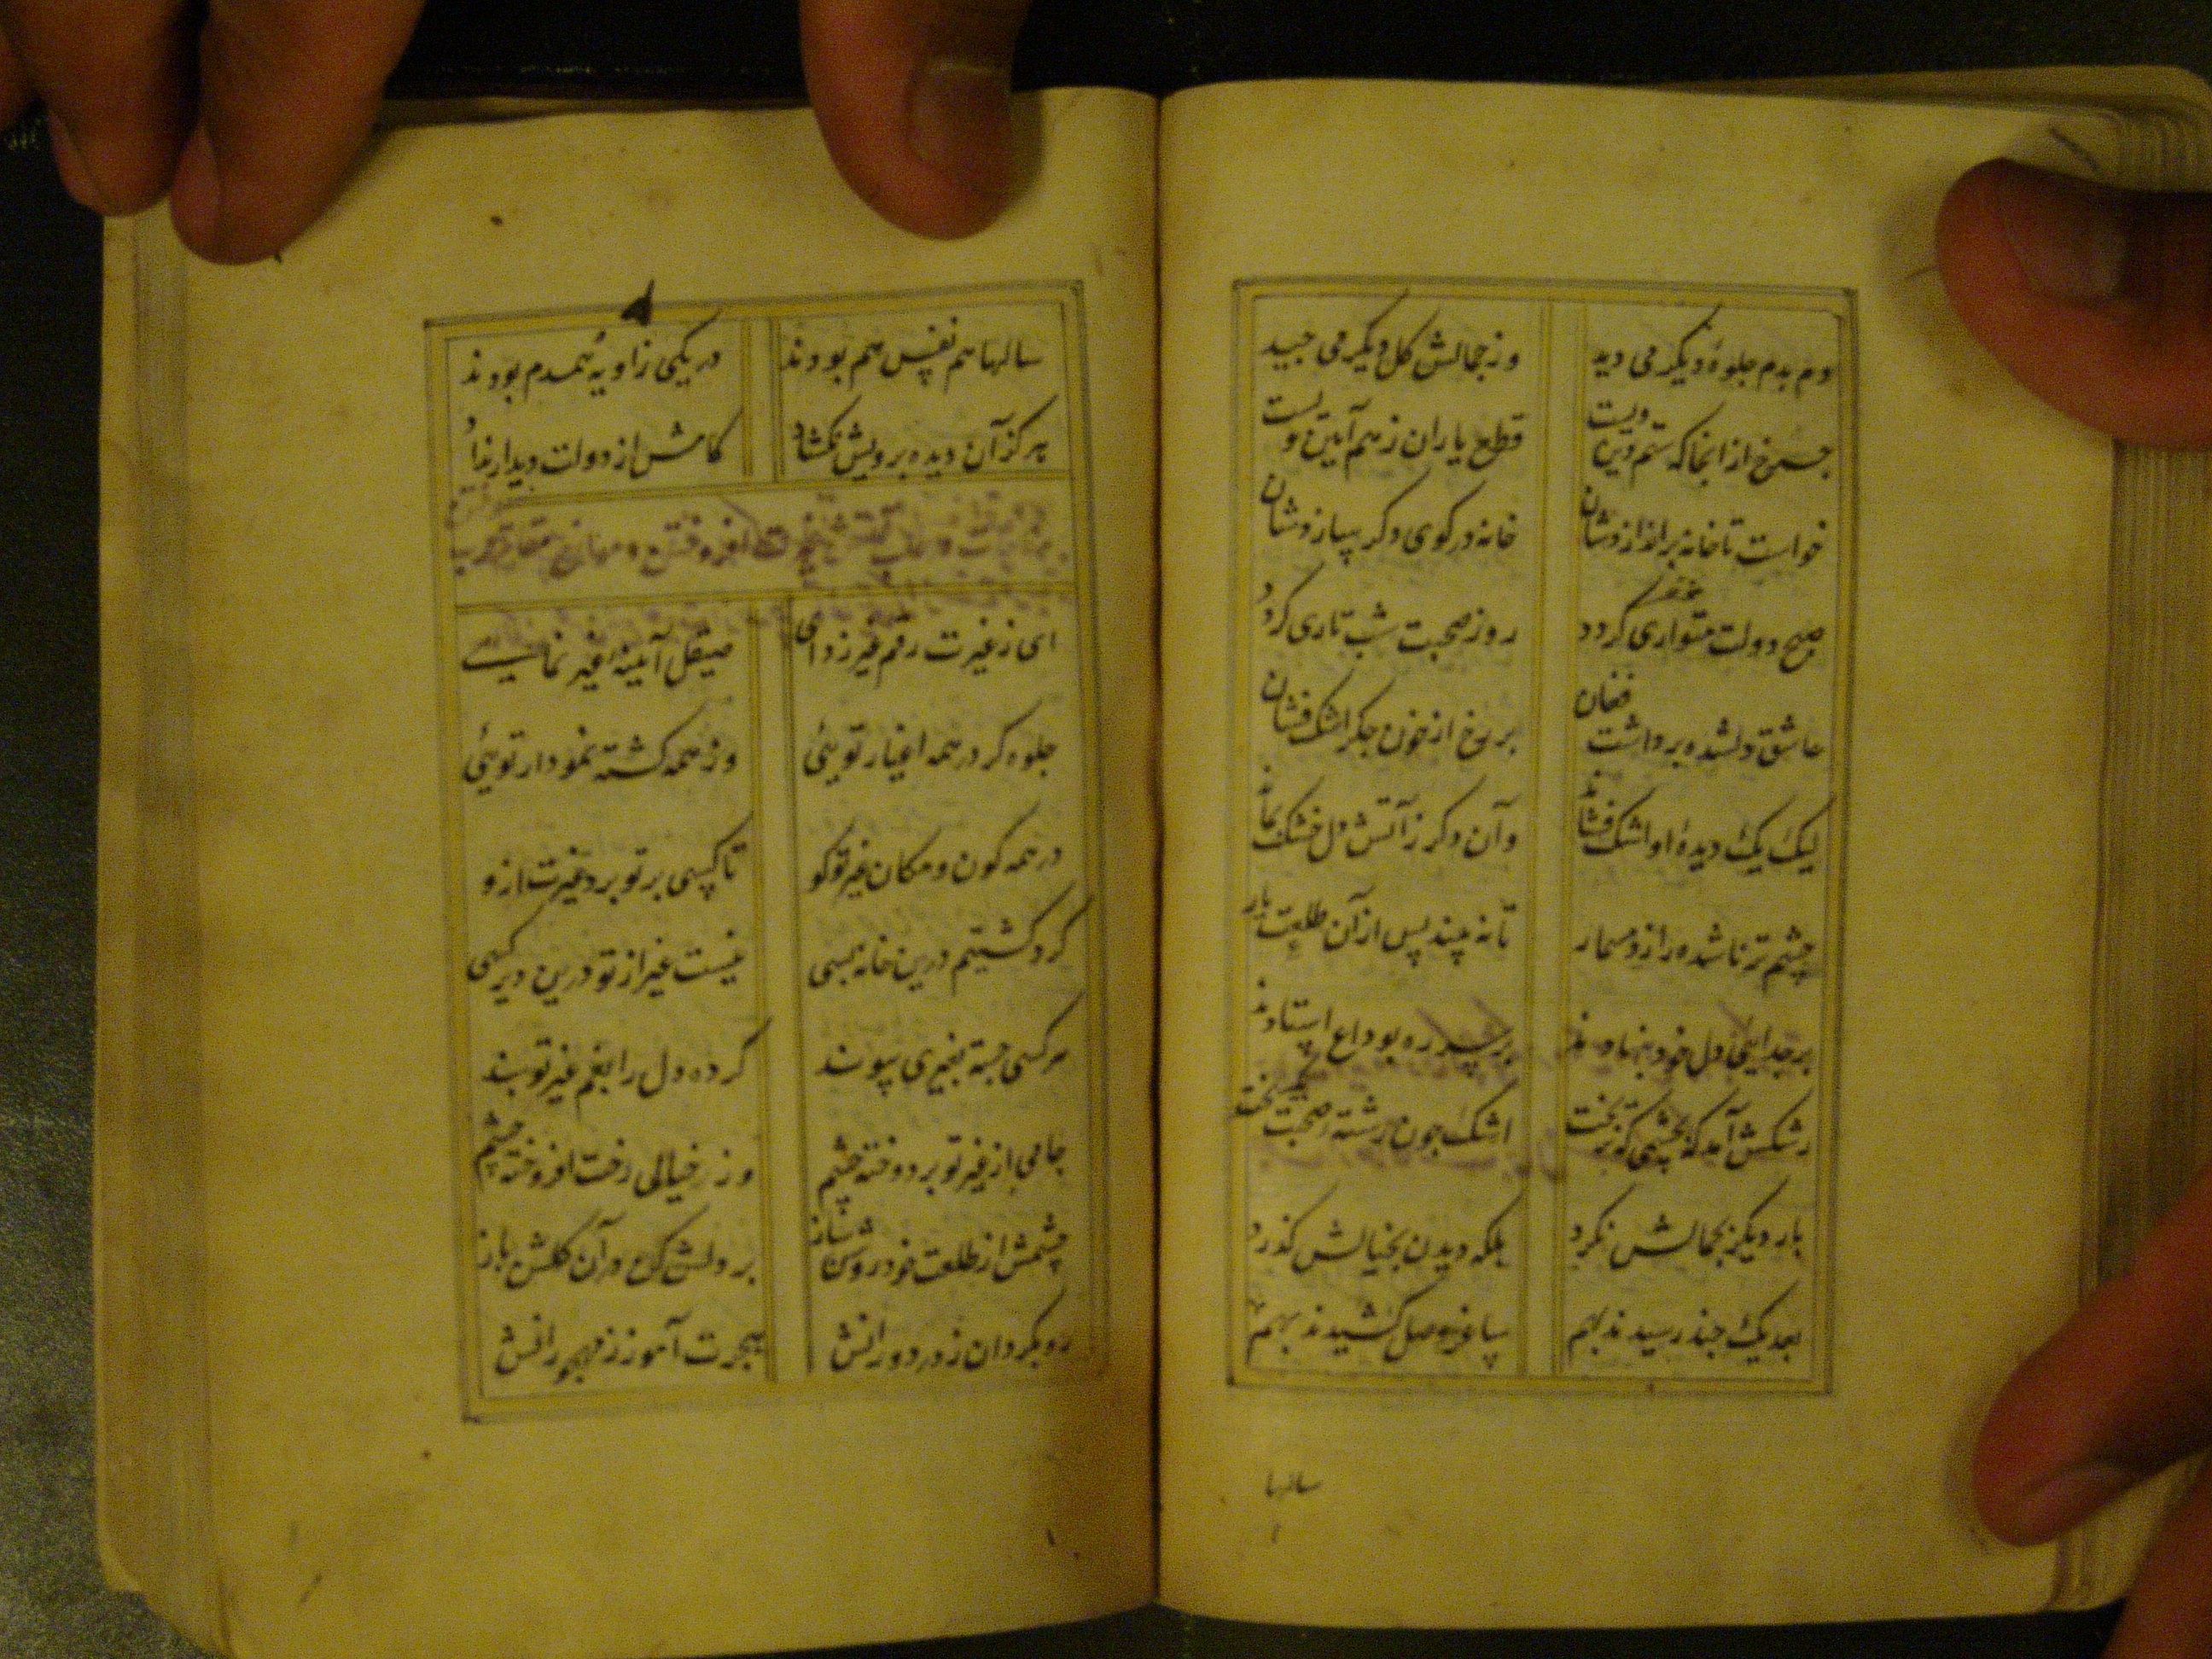 دم بدم جلوهٔ دیکر می دید وز جمالش کل دیکر می چید
چرخ از انجا که ستم دین ویست قطع یاران ز هم آیین ویست
خواست تا خانه براندازدشان خانه در کوی دکر سازدشان
صبح دولت متواری کردد روز صحبت شب تاری کردد
عاشق دلشده برداشت فغان بر رخ از خون جکر اشک فشان
لیک یک دیدهٔ او اشک فشاند وآن دکر ز آتش دل خشک بماند
چشم تر ناشده را زد مسمار تا نه بیند پس از آن طلعت یار
بر جدایی دل خود بنهادند بر سر ره بوداع استادند
رشکش آمد که بچشمی که نریخت اشک چون رشته صحبت بکسیخت
بار دیکر بجمالش نکرد بلکه دیدن بخیالش کذرد
بعد یک چند رسیدند بهم ساغر وصل کشیدند بهم
سالها
سالها هم نفس هم بودند در یکی زاویه همدم بودند
هرکز آن دیده برویش نکشاد کامش از دولت دیدار نداد
ای ز غیرت رقم غیر زدای صیقل آینهٔ غیر نمای
جلوه کر در همه اغیار تویی وز همه کشته نمودار تویی
در همه کون و مکان غیر تو کو تا کسی بر تو برد غیرت ازو
کرد کشتیم درین خانه بسی نیست غیر از تو درین دیر کسی
هر کسی جسته بغیری پیوند کرده دل را بغم غیر تو بند
جامی از غیر تو بر دوخته چشم وز خیالی رخت افروخته چشم
چشمش از طلعت خود روشن ساز بر دلش کن در آن کلشن باز
رو بکردان ز در دورانش هجرت آموز ز مهجورانش